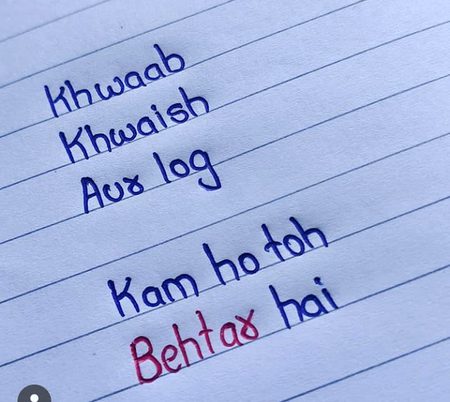 Khwaab
Khwaish
Aur log
Kam ho toh
Behtar hai